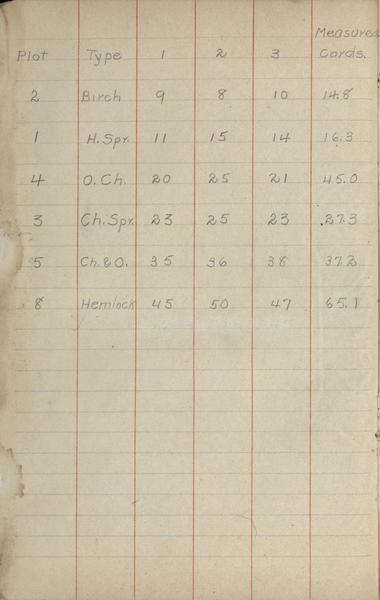 Measured
Plot Type 1 2 3 Cords.
2 Birch 9 8 10 14.8
1 H.Spr. 11 15 14 16.3
4 O.Ch. 20 25 21 45.0
3 Ch.Spr. 23 25 23 27.3
5 Ch.&O. 35 36 38 37.2
8 Hemlock 45 50 47 65.1